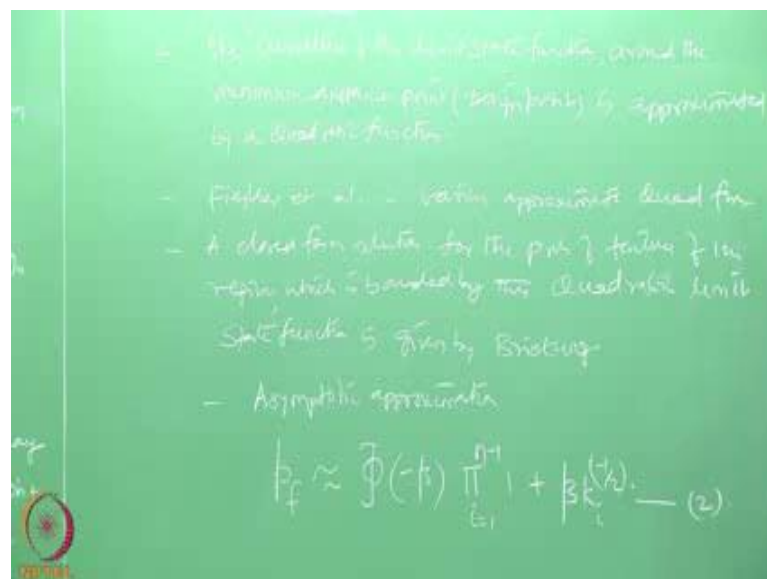 - The curvature of the limit state function, around the
minimum distance point (design points) is approximated
by a quadratic function
- Fiessler et al. - various approximate Quad fn
- A closed form solution for the prob of failure of the
region which is bounded by this Quadratic limit
State function is given by Breitung
- Asymptotic approximation
p_f ≈ Φ(-β) ∏_{i=1}^{n-1} 1 + βk_i^{(-1/2)}. — (2)
NPTEL